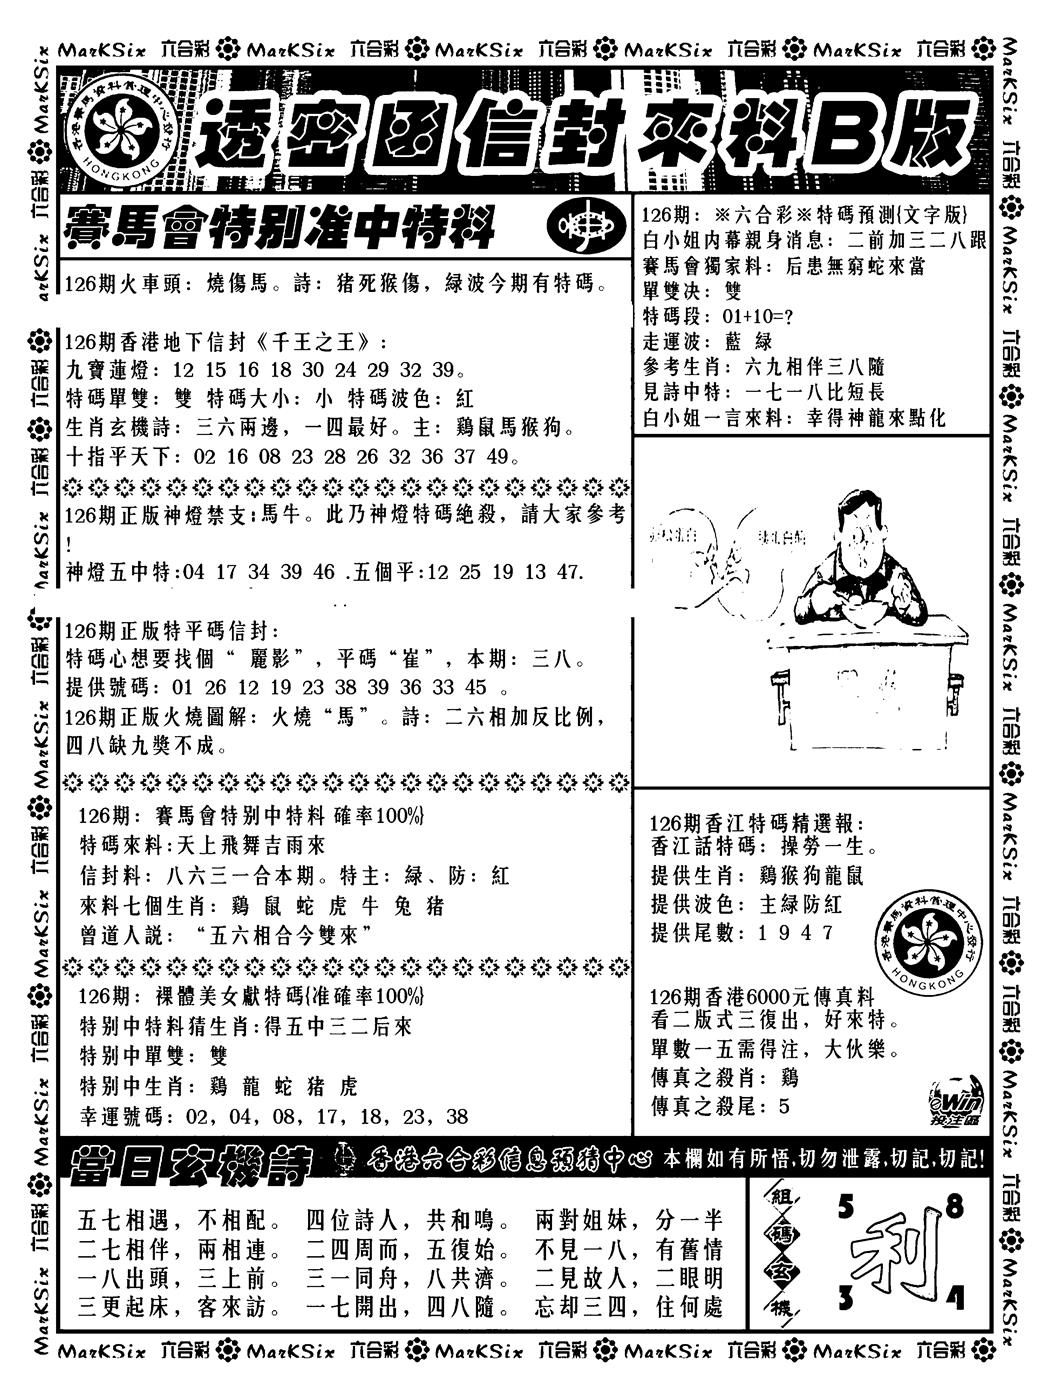 MarKSix 六合彩 MarKSix 六合彩 MarKSix 六合彩 MarKSix 六合彩 MarKSix 六合彩
香港賽馬資料管理中心發行
HONGKONG
透密函信封來料B版
賽馬會特别准中特料
126期火車頭：燒傷馬。詩：猪死猴傷，緑波今期有特碼。
126期香港地下信封《千王之王》:
九寶蓮燈：12 15 16 18 30 24 29 32 39。
特碼單雙：雙 特碼大小：小 特碼波色：紅
生肖玄機詩：三六兩邊，一四最好。主：鷄鼠馬猴狗。
十指平天下：02 16 08 23 28 26 32 36 37 49。
126期正版神燈禁支:馬牛。此乃神燈特碼絶殺，請大家參考
!
神燈五中特:04 17 34 39 46 .五個平:12 25 19 13 47.
126期正版特平碼信封:
特碼心想要找個“ 麗影”，平碼“崔”，本期：三八。
提供號碼：01 26 12 19 23 38 39 36 33 45 。
126期正版火燒圖解：火燒“馬”。詩：二六相加反比例，
四八缺九獎不成。
126期：賽馬會特别中特料 確率100%}
特碼來料:天上飛舞吉雨來
信封料：八六三一合本期。特主：緑、防：紅
來料七個生肖：鷄 鼠 蛇 虎 牛 兔 猪
曾道人説：“五六相合今雙來”
126期：裸體美女獻特碼{准確率100%}
特别中特料猜生肖:得五中三二后來
特别中單雙：雙
特别中生肖：鷄 龍 蛇 猪 虎
幸運號碼：02, 04, 08, 17, 18, 23, 38
126期：※六合彩※特碼預測{文字版}
白小姐内幕親身消息：二前加三二八跟
賽馬會獨家料：后患無窮蛇來當
單雙决：雙
特碼段：01+10=?
走運波：藍 緑
參考生肖：六九相伴三八隨
見詩中特：一七一八比短長
白小姐一言來料：幸得神龍來點化
126期香江特碼精選報:
香江話特碼：操勞一生。
提供生肖：鷄猴狗龍鼠
提供波色：主緑防紅
提供尾數：1 9 4 7
香港賽馬資料管理中心發行
HONGKONG
126期香港6000元傳真料
看二版式三復出，好來特。
單數一五需得注，大伙樂。
傳真之殺肖：鷄
傳真之殺尾：5
eWin
投注區
當日玄機詩 香港六合彩信息預猜中心 本欄如有所悟,切勿泄露,切記,切記!
五七相遇，不相配。 四位詩人，共和鳴。 兩對姐妹，分一半
二七相伴，兩相連。 二四周而，五復始。 不見一八，有舊情
一八出頭，三上前。 三一同舟，八共濟。 二見故人，二眼明
三更起床，客來訪。 一七開出，四八隨。 忘却三四，住何處
組碼玄機
5 8
利
3 4
MarKSix 六合彩 MarKSix 六合彩 MarKSix 六合彩 MarKSix 六合彩 MarKSix 六合彩